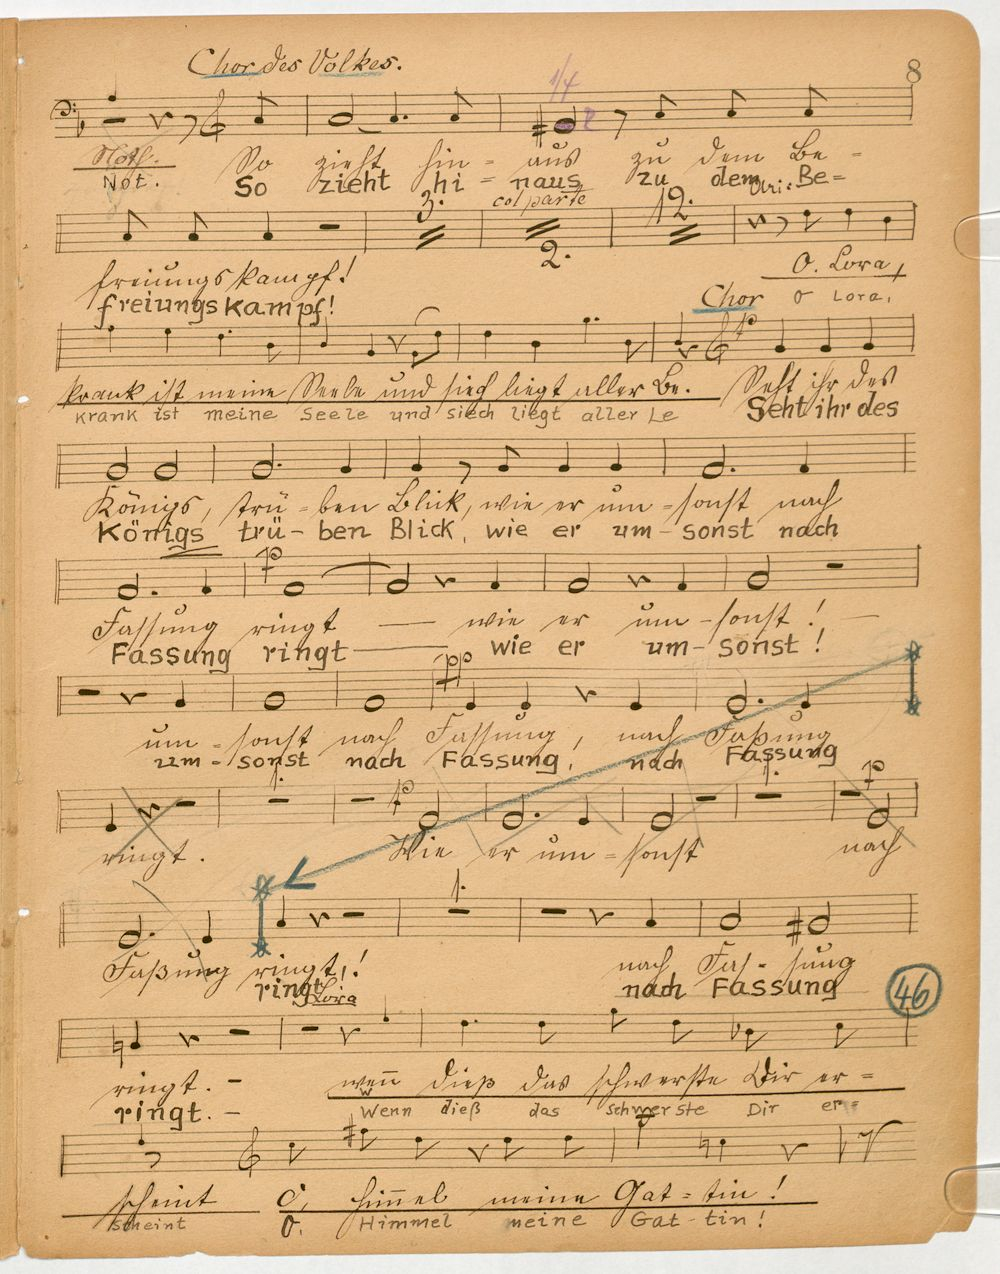 Chor des Volkes.
8
1/4
Noth. So zieht hin = aus zu dem Be =
Not. So zieht hi = naus zu dem Be=
3. col parte 12.
2.
freiungskampf! O. Lora,
freiungskampf! Chor O Lora,
p
krank ist meine Seele und siech liegt aller Be. Seht ihr des
krank ist meine Seele und siech liegt aller Le Seht ihr des
Königs, trü = ben Blick, wie er um = sonst nach
Königs trü - ben Blick, wie er um - sonst nach
p
Fassung ringt — wie er um - sonst! —
Fassung ringt — wie er um - sonst!
pp
um = sonst nach Fassung, nach Faßung
um = sonst nach Fassung, nach Fassung
1. p 1. p
ringt. Wie er um = sonst nach
1.
Faßung ringt! nach Fas - sung
ringt nach Fassung 46
Lora
ringt. - wenn dieß das schwerste Dir er =
ringt. - Wenn dieß das schwerste Dir er =
scheint O, Himmel meine Gat = tin!
scheint O. Himmel meine Gat - tin!